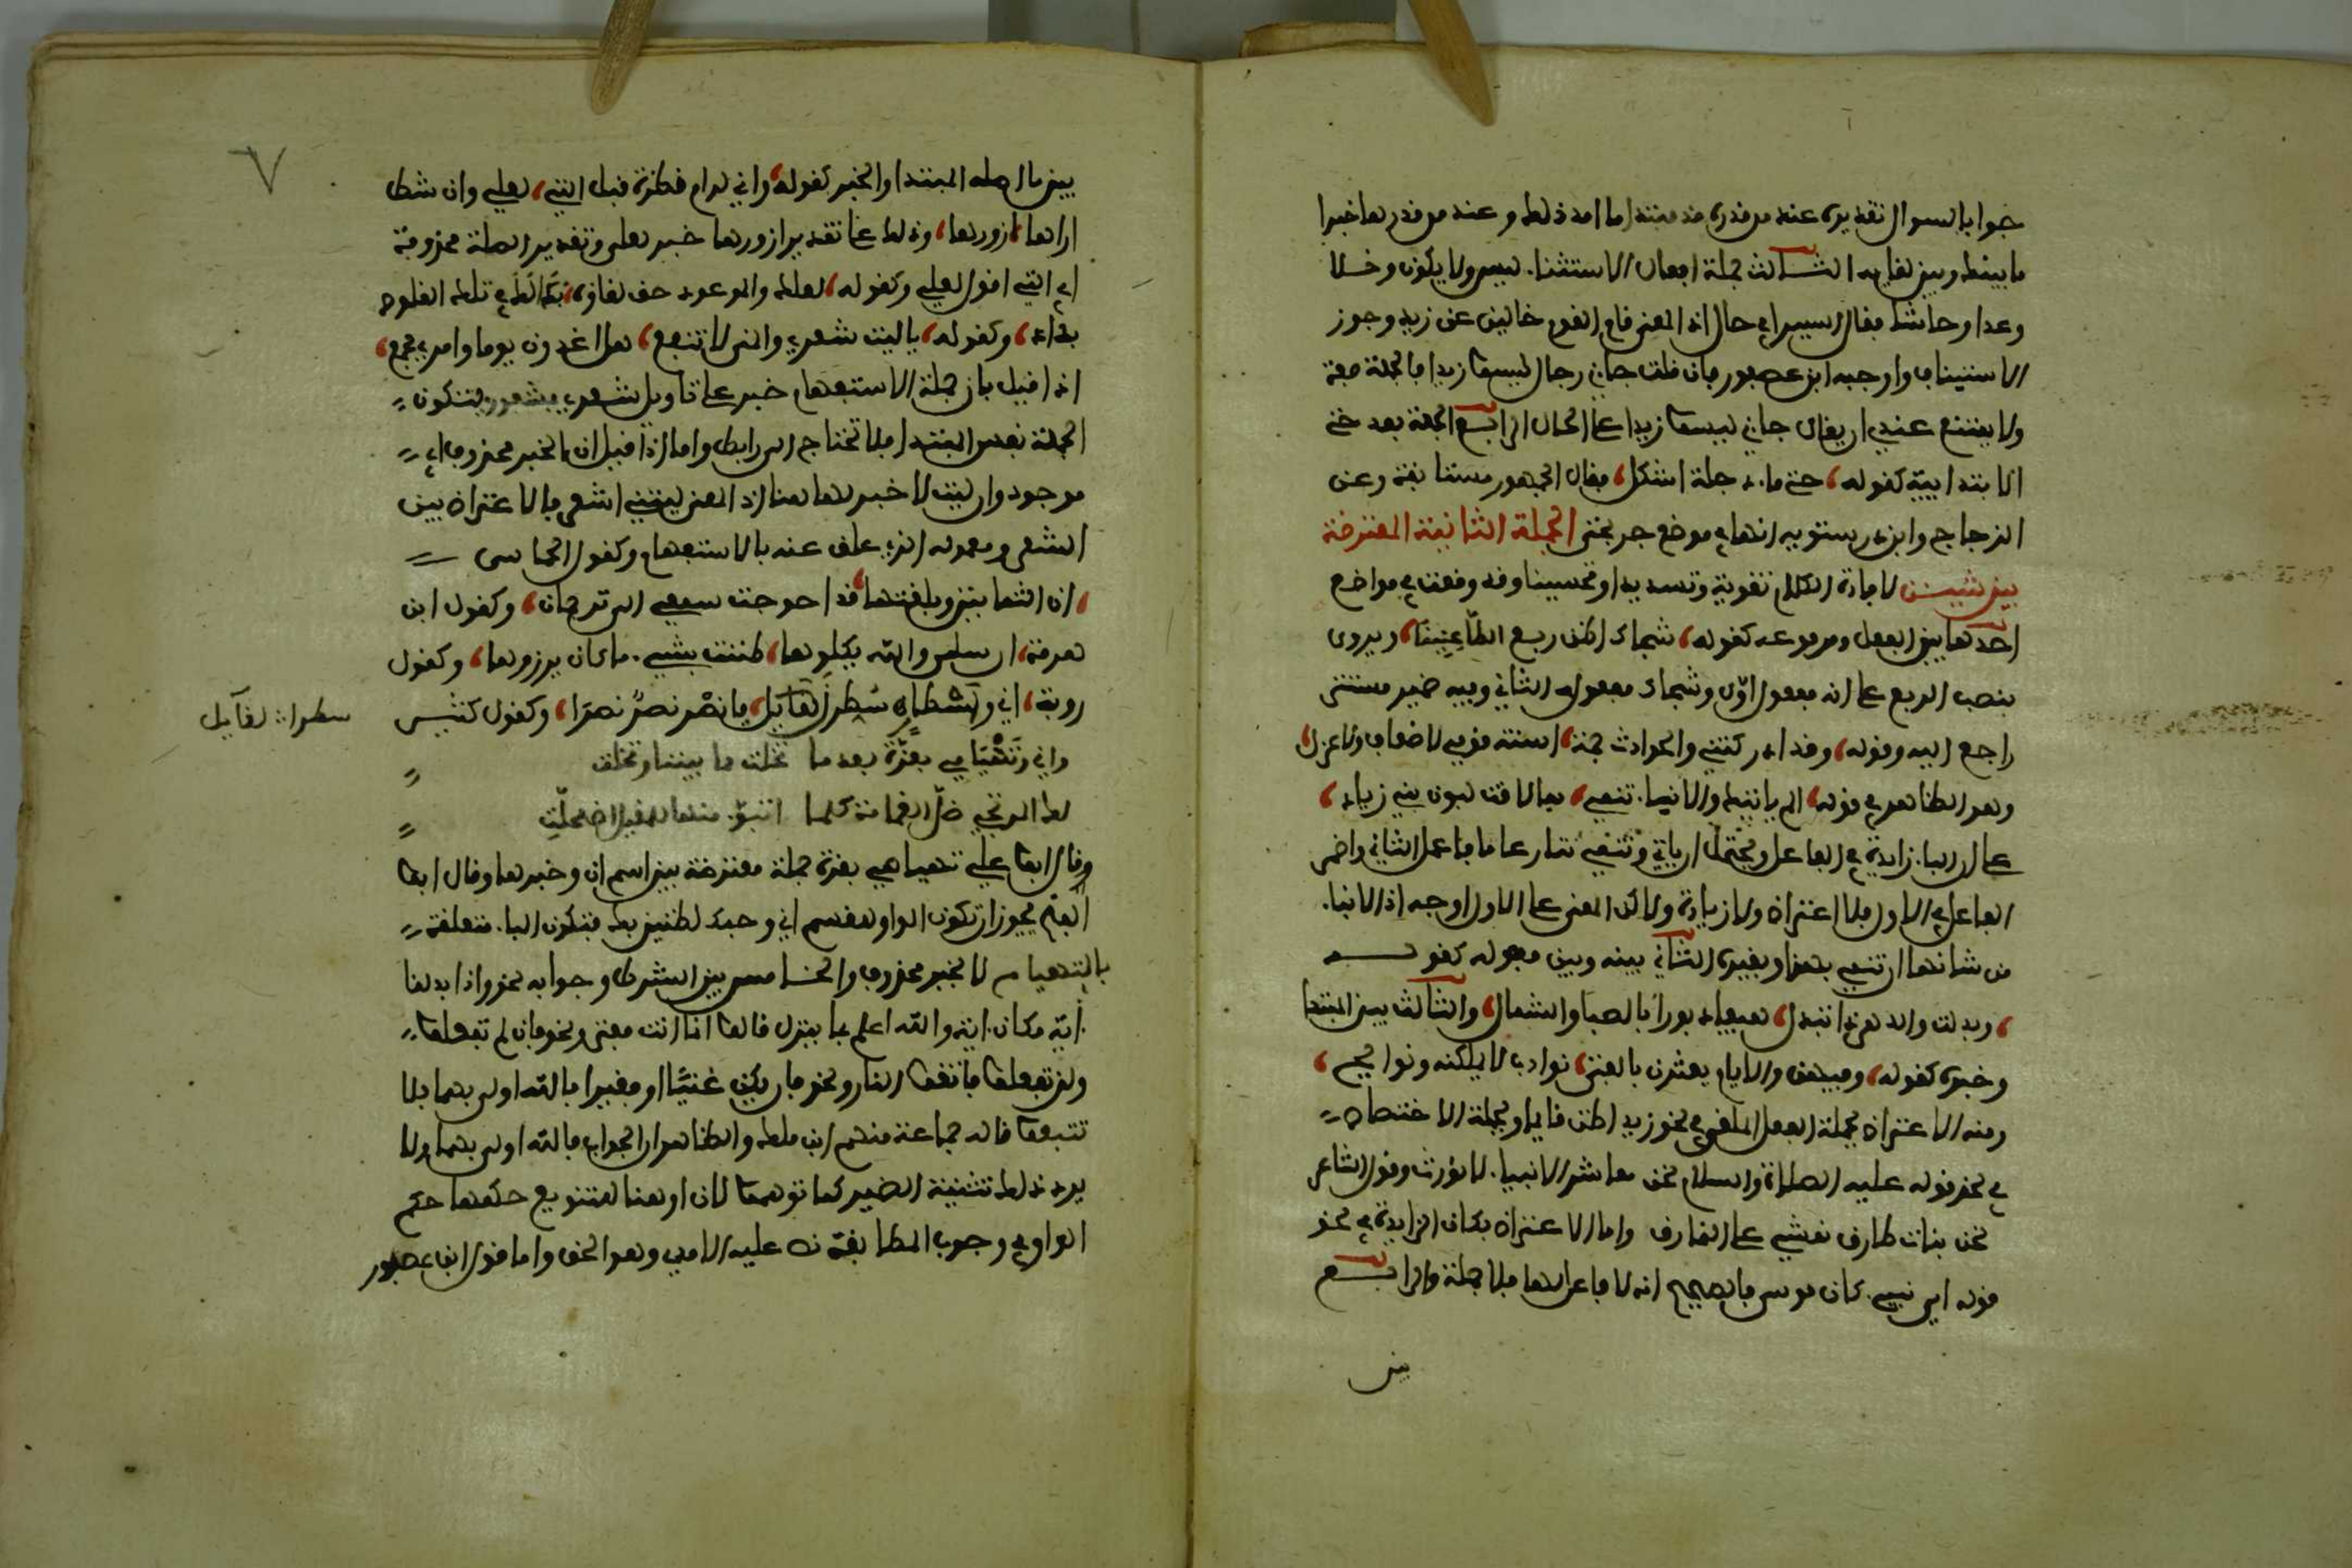 جوابا لسوال تقديره عند من قدر مذ مبتدا ما امد ذلك وعند من قدرها خبرا
ما بينك وبين لقايه الثالث جملة افعال الاستثناء ليس ولا يكون وخلا
وعدا وحاشا فقال السيرافي حال اذ المعنى قام القوم خالين عن زيد وجوز
الاستيناف واوجبه ابن عصفور فان قلت جاني رجال ليسوا زيدا فالجملة صفة
ولا يمتنع عندي ان يقال جاني ليسوا زيدا على الحال الرابع الجملة بعد حتى
الابتدايية كقوله حتى ماء دجلة اشكل فقال الجمهور مستانفة وعن
الزجاج وابن درستويه انها في موضع جر بحتى الجملة الثانية المعترضة
بين شيين لافادة الكلام تقوية وتسديدا او تحسينا وقد وقعت في مواضع
احدها بين الفعل ومرفوعه كقوله شجاك اظن ربع الظاعنينا ويروى
بنصب الربع على انه مفعول اول وشجاك مفعوله الثاني وفيه ضمير مستتر
راجع اليه وقوله وقد ادركتني والحوادث جمة اسنة قوم لا ضعاف ولا عزل
وهو الظاهر في قوله الم ياتيك والانباء تنمي بما لاقت لبون بني زياد
على ان الباء زايدة في الفاعل ويحتمل ان ياتي وتنمي تنازعا ما فاعمل الثاني واضمر
الفاعل في الاول فلا اعتراض ولا زيادة ولكن المعنى على الاول اوجه اذ الانباء
من شانها ان تنمي بهذا وبغيره الثاني بينه وبين مفعوله كقوله
وبدلت والدهر ذو تبدل هيفا دبورا بالصبا والشمال والثالث بين المبتدا
وخبره كقوله وفيهن والايام يعثرن بالفتى نوادب لا يمللنه ونوايح
ومنه الاعتراض بجملة الفعل الملغى في نحو زيد اظن قايم او بجملة الاختصاص
في نحو قوله عليه الصلاة والسلام نحن معاشر الانبياء لا نورث وقول الشاعر
نحن بنات طارق نمشي على النمارق واما الاعتراض بكان الزايدة في نحو
قوله او نبي كان موسى فالصحيح انه لا فاعل لها فلا جملة والرابع
بين
٧
بين ما اصله المبتدا والخبر كقوله واني لرام نظرة قبل التي لعلي وان شطت
نواها ازورها وذلك على تقدير ازورها خبر لعلي وتقدير الصلة محذوفة
اي التي اقول لعلي وكقوله لعلك والموعود حق لقاوه بدا لك في تلك القلوص
بداء وكقوله يا ليت شعري والمنى لا تنفع هل اغدون يوما وامري مجمع
اذا قيل بان جملة الاستفهام خبر على تاويل شعري بمشعوري لتكون
الجملة نفس المبتدا فلا تحتاج الى رابط واما اذا قيل ان الخبر محذوف اي
موجود وان ليت لا خبر لها هنا اذ المعنى ليتني اشعر فالاعتراض بين
الشعر ومعموله الذي علق عنه بالاستفهام وكقول الحماسي
ان الثمانين وبلغتها قد احوجت سمعي الى ترجمان وكقول ابن
هرمة ان سليمى والله يكلوها ظننت بشيء ما كان يرزوها وكقول
روبة اني واسطار سطرن القايل يا نصر نصر نصرا وكقول كثير
سطرا لقايل
واني وتهيامي بعزة بعدما تخليت مما بيننا وتخلت
لكالمرتجي ظل الغمامة كلما تبوا منها للمقيل اضمحلت
وقال ابو علي تهيامي بعزة جملة معترضة بين اسم ان وخبرها وقال ابو
الفتح يجوز ان تكون الواو للقسم اني وحبك لضنين بك فتكون الباء متعلقة
بالتهيام لا بخبر محذوف والخامس بين الشرط وجوابه نحو واذا بدلنا
اية مكان اية والله اعلم بما ينزل قالوا انما انت مفتر ونحو فان لم تفعلوا
ولن تفعلوا فاتقوا النار ونحو ان يكن غنيا او فقيرا فالله اولى بهما فلا
تتبعوا قاله جماعة منهم ابن ملك والظاهر ان الجواب فالله اولى بهما ولا
يرد ذلك تثنية الضمير كما توهموا لان او هنا للتنويع حكمها حكم
الواو في وجوب المطابقة نص عليه الامدي وهو الحق واما قول ابن عصفور